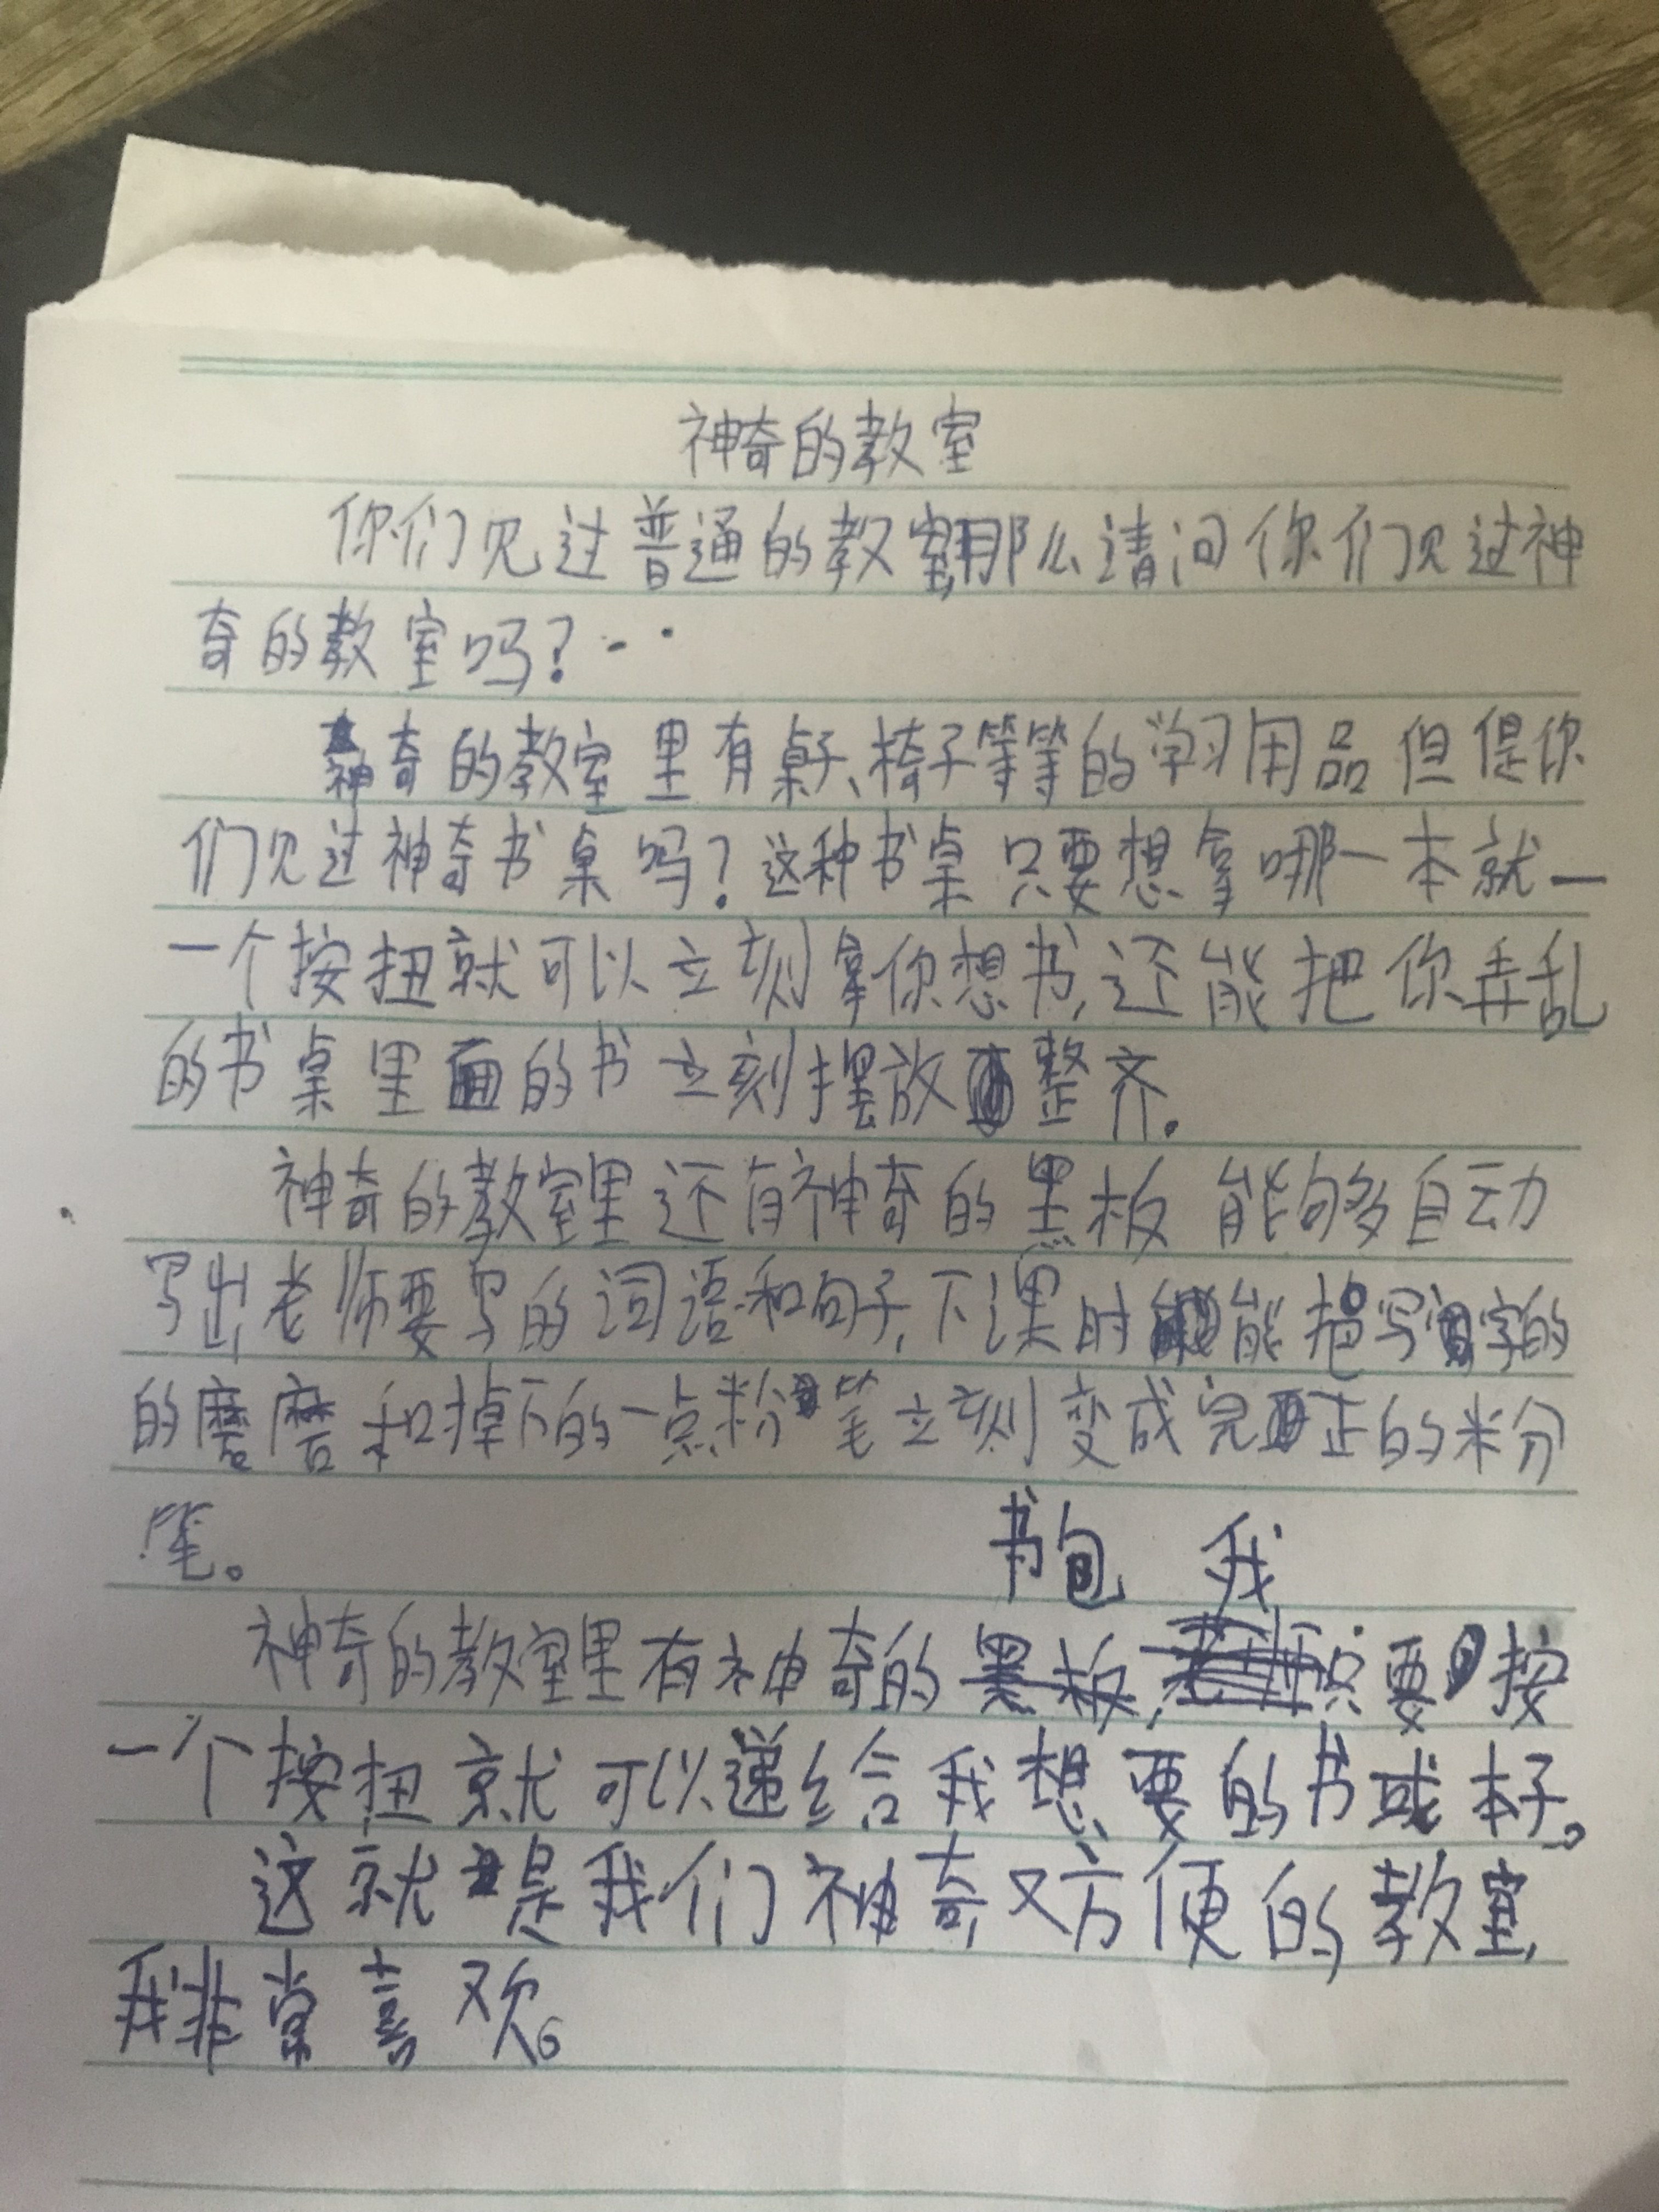 神奇的教室
你们见过普通的教室,那么请问你们见过神
奇的教室吗?··
神奇的教室里有桌子、椅子等等的学习用品但是你
们见过神奇书桌吗?这种书桌只要想拿哪一本就一
一个按扭就可以立刻拿你想书,还能把你弄乱
的书桌里面的书立刻摆放整齐.
神奇的教室里还有神奇的黑板 能够自动
写出老师要写的词语和句子,下课时能把写字的
的磨磨和掉下的一点粉笔立刻变成完正的粉
笔。
书包 我
神奇的教室里有神奇的黑板,老师只要按
一个按扭就可以递给我想要的书或本子。
这就是我们神奇又方便的教室,
我非常喜欢。